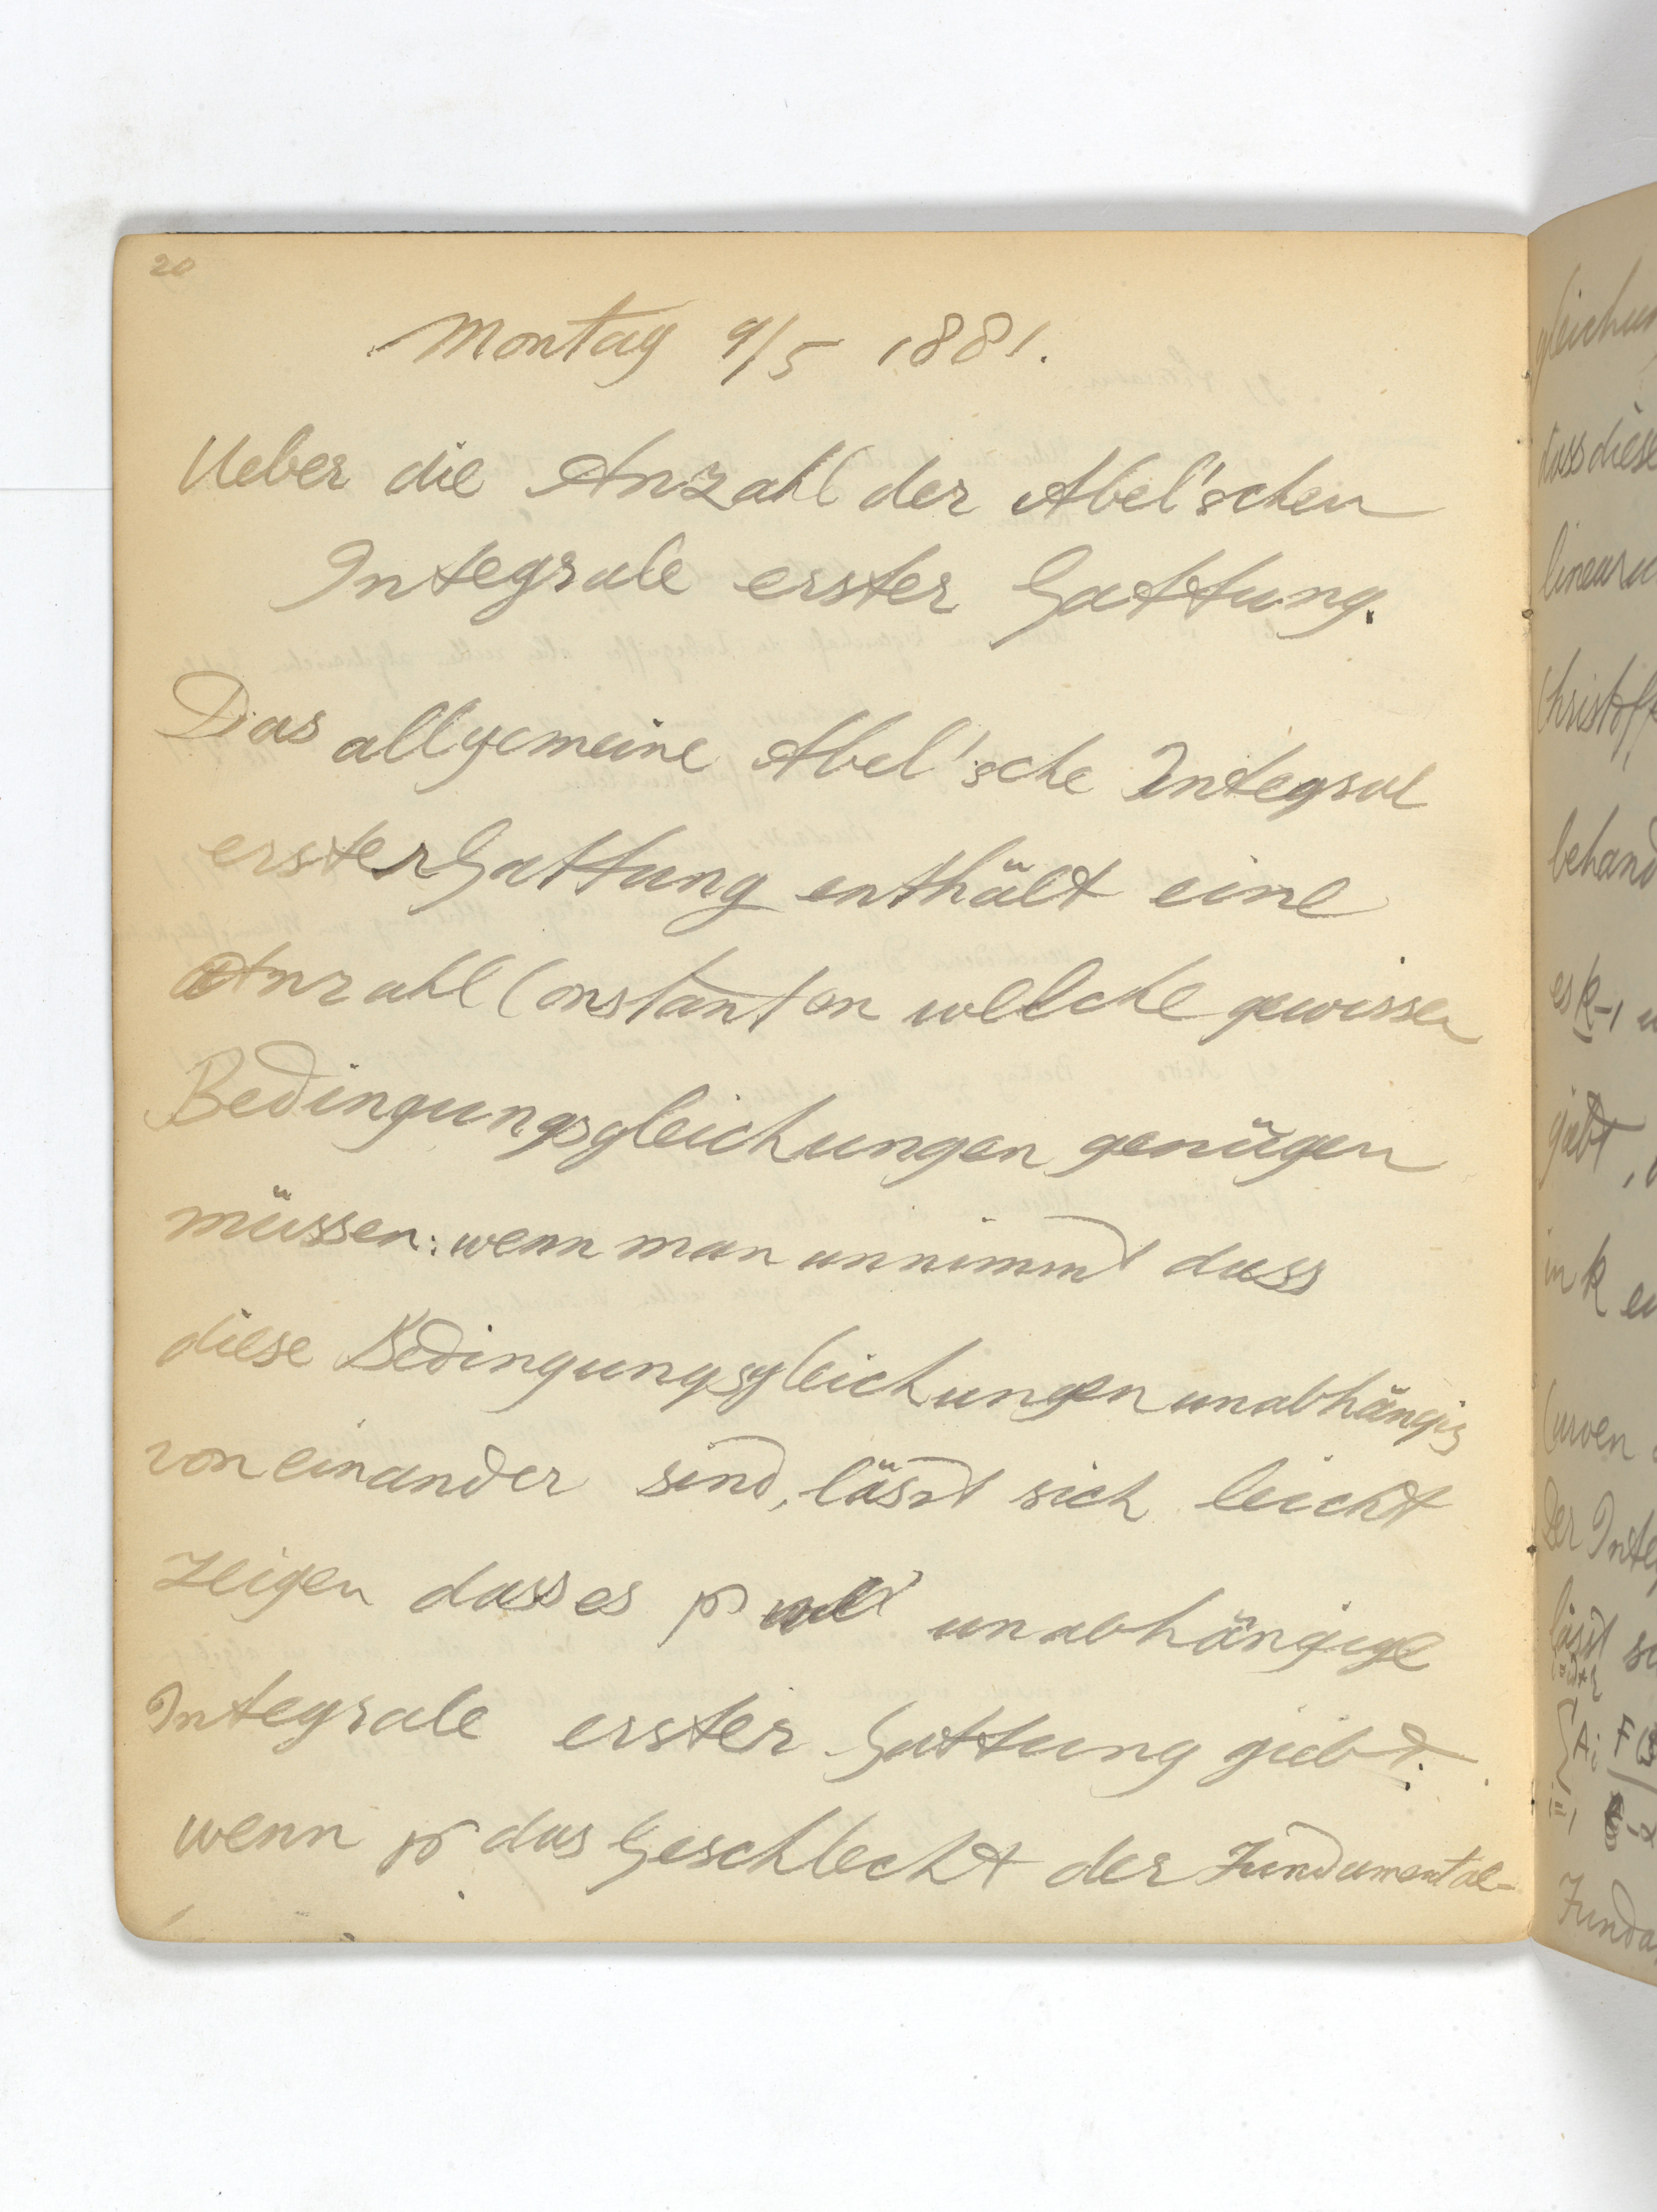 20
Montag 9/5 1881.
Ueber die Anzahl der Abel'schen
Integrale erster Gattung.
Das allgemeine Abel'sche Integral
erster Gattung enthält eine
Anzahl Constanten welche gewissen
Bedingungsgleichungen genügen
müssen: wenn man annimmt dass
diese Bedingungsgleichungen unabhängig
von einander sind, lässt sich leicht
zeigen dass es p unabhängige
Integrale erster Gattung giebt.
wenn p das Geschlecht der Fundamental-
gleichun
dass diese
linearu
Christoff
behand
es k-1 u
giebt,
in k ei
Curven
Der Inte
lässt si
A_i F(
Funda